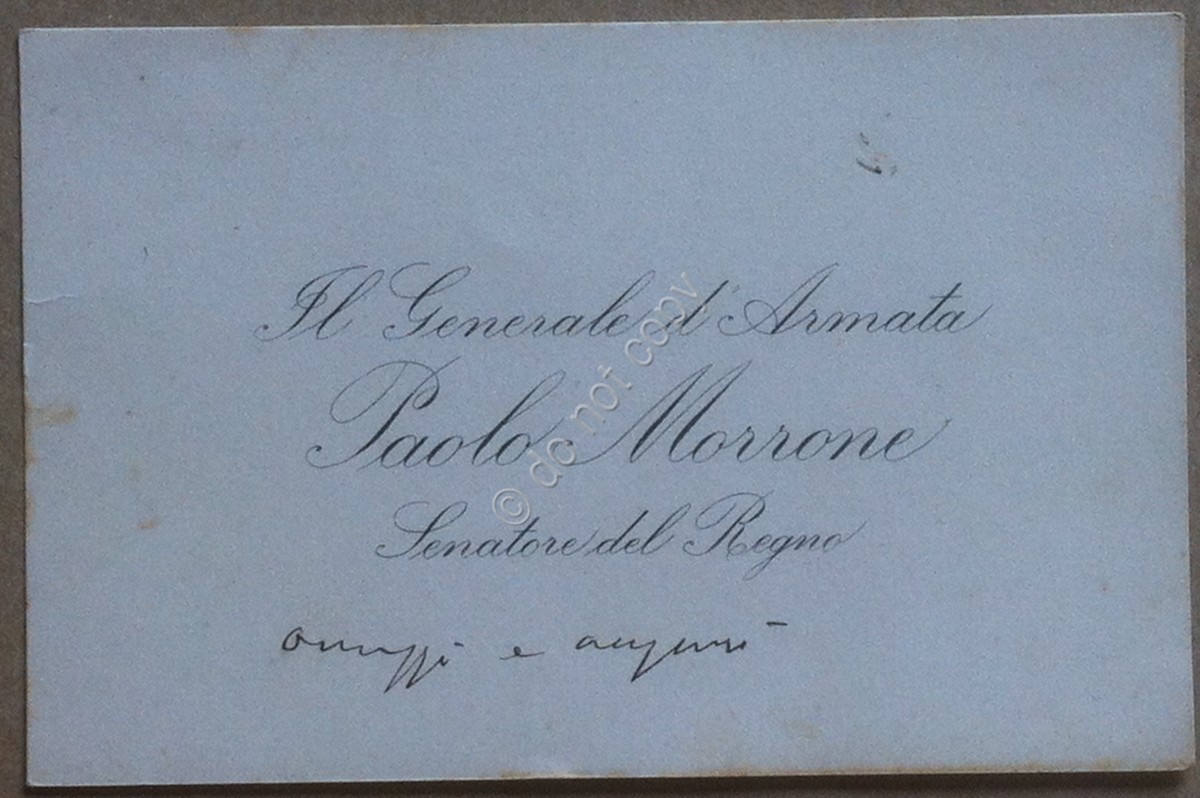 Il Generale d'Armata
Paolo Morrone
Senatore del Regno
omaggi e auguri
© do not copy